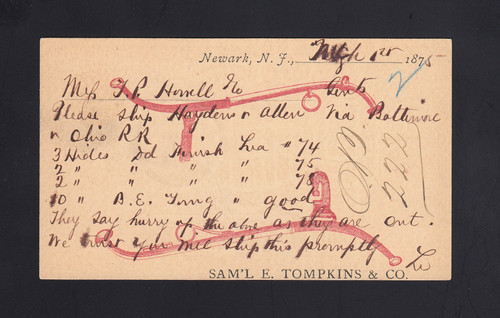 Newark, N. J., Mch 1st 1875
Mess T. P. Howell & Co Gents
Please ship Haydens & Allen Via Baltimore
& Ohio R R
3 Hides Dd Finish Lea # 74
2 " " " " 75
2 " " " " 78
10 " B. E. " good
They say hurry up the above as they are out.
We trust you will ship this promptly
SAM'L E. TOMPKINS & CO.
222
2